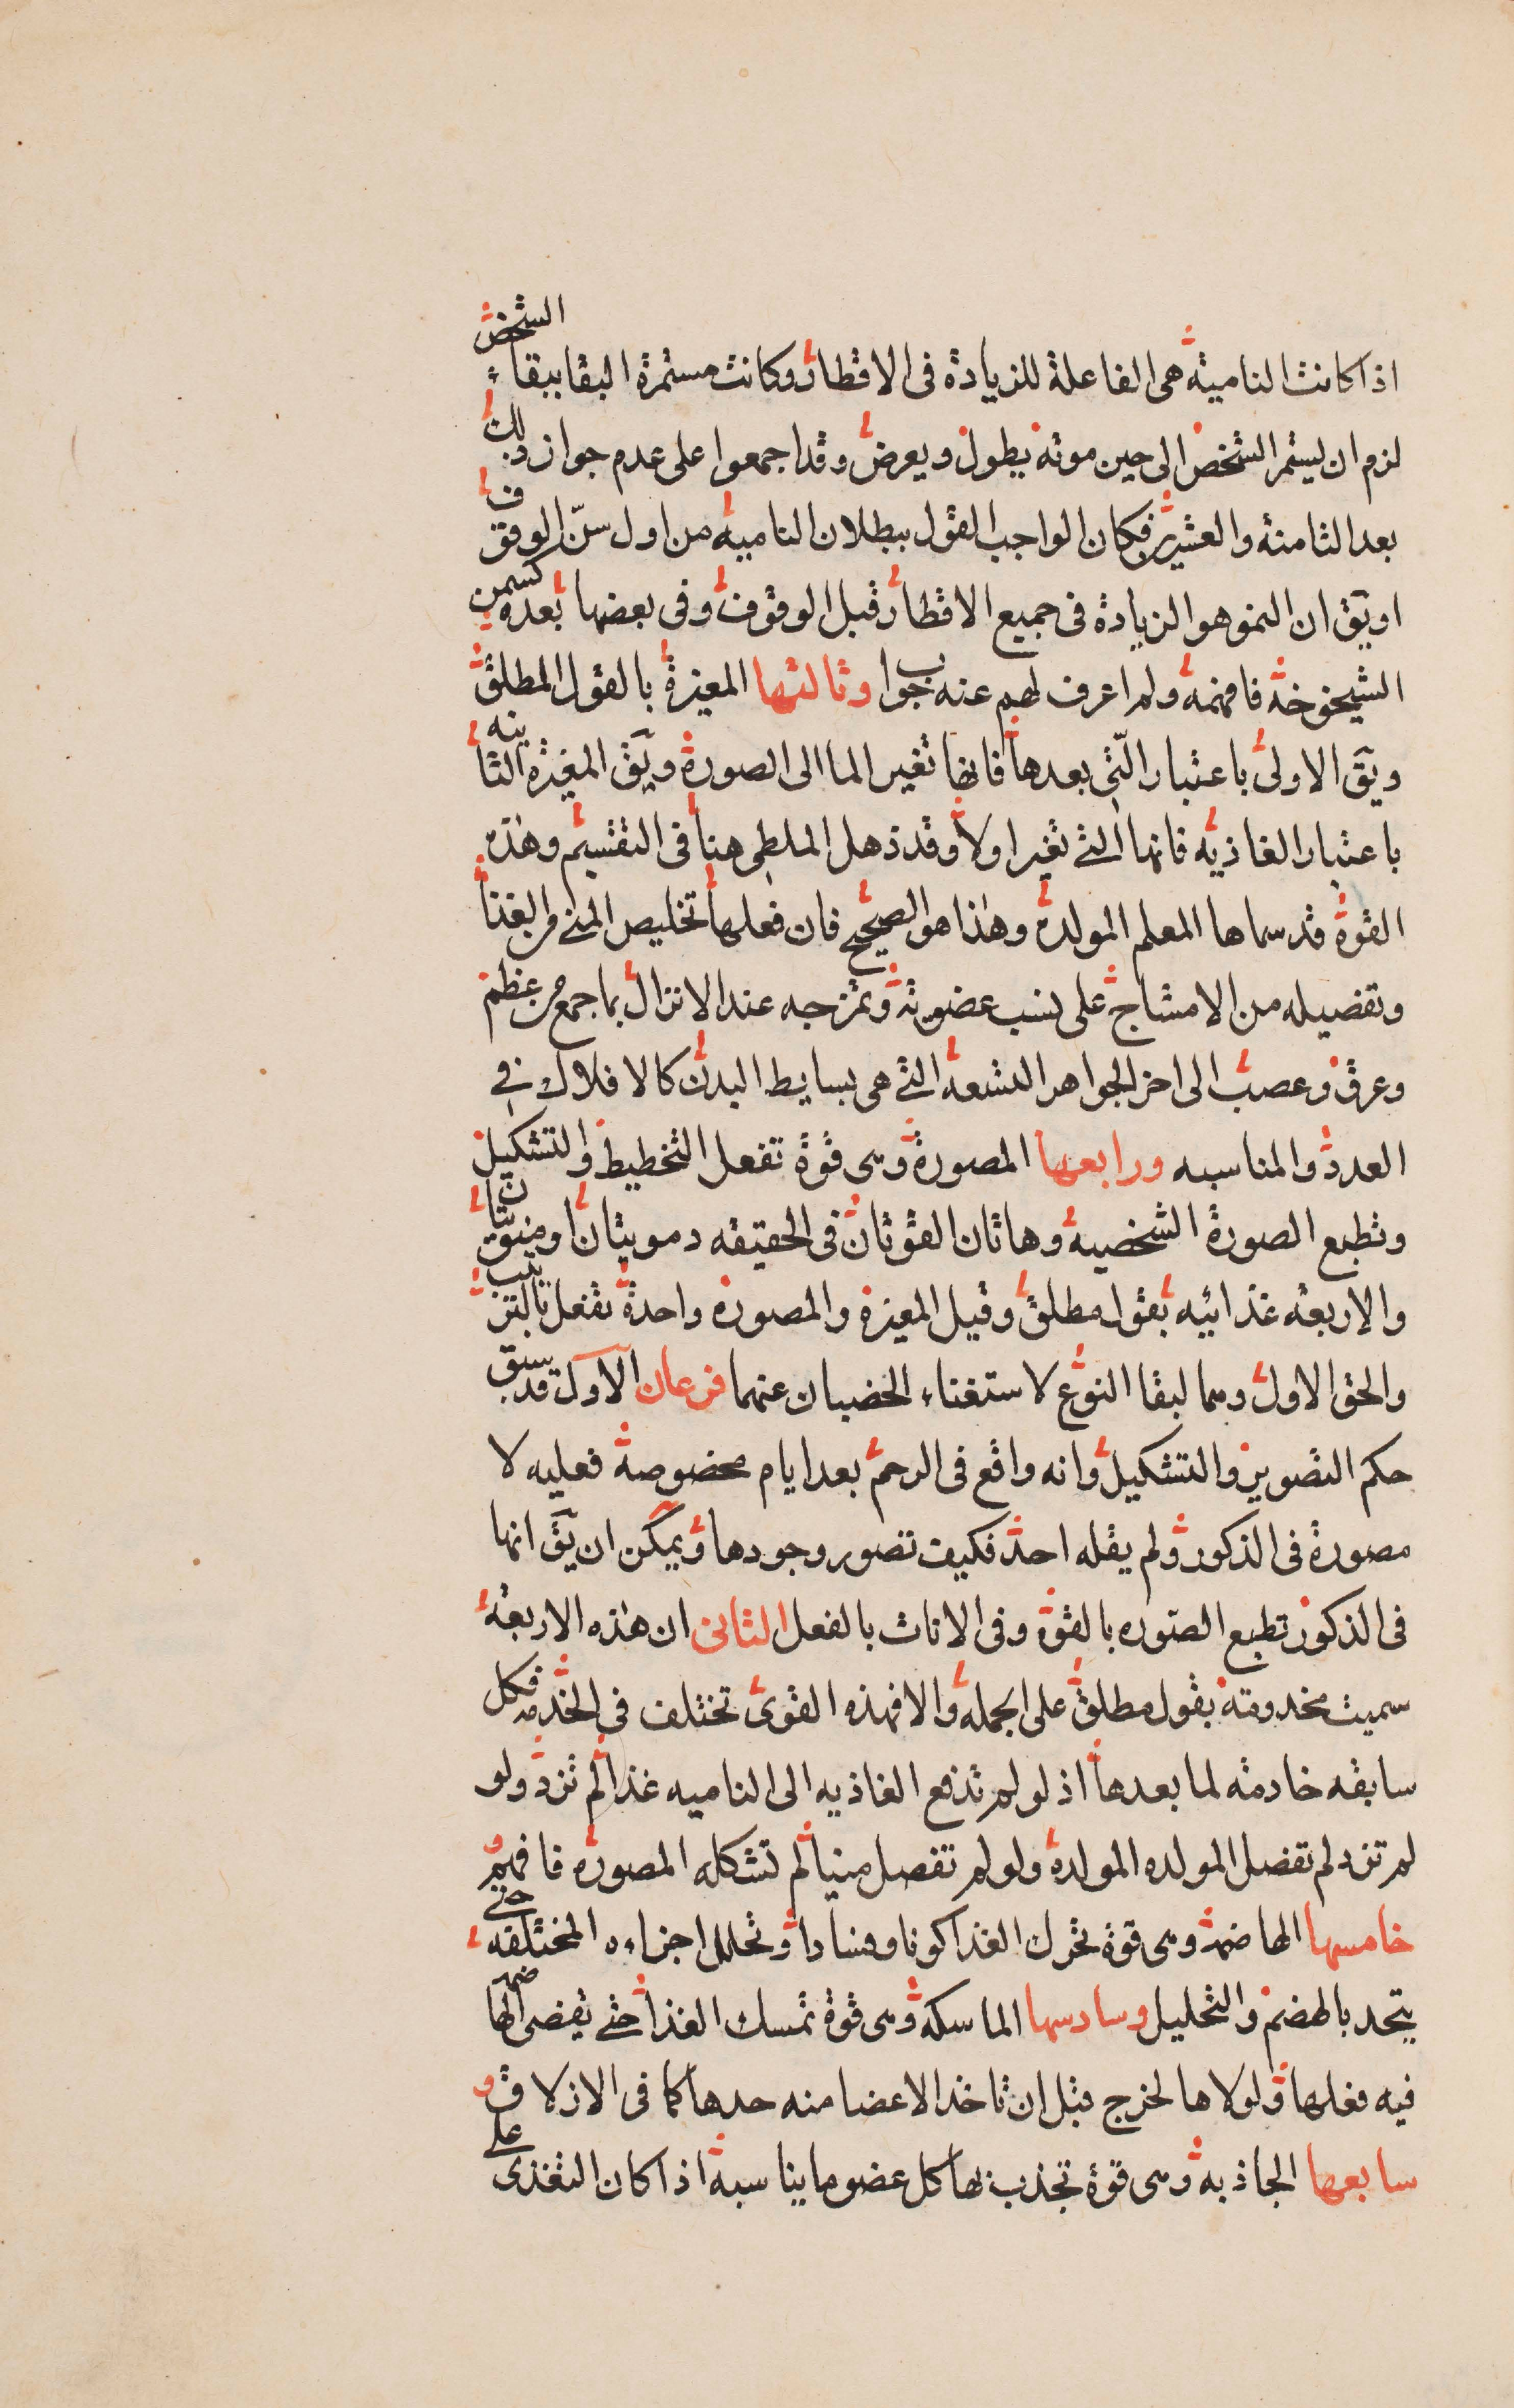 اذا كانت النامية هى الفاعلة للزيادة فى الاقطار وكانت مستمرة البقا ببقاء الشخص
لزم ان يستمر الشخص الى حين موته يطول ويعرض وقد اجمعوا على عدم جواز ذلك
بعد الثامنة والعشرين فكان الواجب القول ببطلان النامية من اول سنّ الوقوف
او يق ان النمو هو الزيادة فى جميع الاقطار قبل الوقوف وفى بعضها بعده كسمن
الشيخوخة فافهمه ولم اعرف لهم عنه جوابا وثالثها المغيرة بالقول المطلق
ويق الاولى باعتبار الّتى بعدها فانها تغير الما الى الصورة ويق المغيرة الثانيه
باعتبار الغاذيه فانها التى تغير اولا وقد ذهل الملطى هنا فى التقسيم وهذه
القوة قد سماها المعلم المولدة وهذا هو الصحيح فان فعلها تخليص المنى من الغذا
وتفصيله من الامشاج على نسب عضوية وتمزجه عند الانزال بما جمع من عظم
وعرق وعصب الى اخر الجواهر التسعة التى هى بسايط البدن كالافلاك فى
العدد والمناسبه ورابعها المصورة وهى قوة تفعل التخطيط والتشكيل
وتطبع الصورة الشخصية وهاتان القوتان فى الحقيقه دمويتان او منويتان
والاربعه غذائيه بقول مطلق وقيل المغيرة والمصورة واحدة تفعل بالترتيب
والحق الاول وهما لبقا النوع لاستغناء الخصيان عنهما فرعان الاول قد سبق
حكم التصوير والتشكيل وانه واقع فى الرحم بعد ايام مخصوصة فعليه لا
مصورة فى الذكور ولم يقله احد فكيف تصور وجودها ويمكن ان يق انها
فى الذكور تطبع الصوره بالقوة وفى الاناث بالفعل الثانى ان هذه الاربعه
سميت مخدومة بقول مطلق على الجمله والا فهذه القوى تختلف فى الخدمه فكل
سابقه خادمه لما بعدها اذ لو لم تدفع الغاذيه الى الناميه غذا لم تزد ولو
لم تزد لم تفضل المولده المولدة ولو لم تفصل منيا لم تشكله المصوره فافهم و
خامسها الهاضمة وهى قوة تحرك الغذا كونا وفسادا وتحلل اجزاءه المختلفه حتى
يتحد بالهضم والتحليل وسادسها الماسكة وهى قوة تمسك الغذا حتى تفضى الهاضمه
فيه فعلها ولولاها لخرج قبل ان تاخذ الاعضا منه حدها كما فى الازلاق و
سابعها الجاذبه وهى قوة تجذب بها كل عضو ما يناسبه اذا كان التغذى على